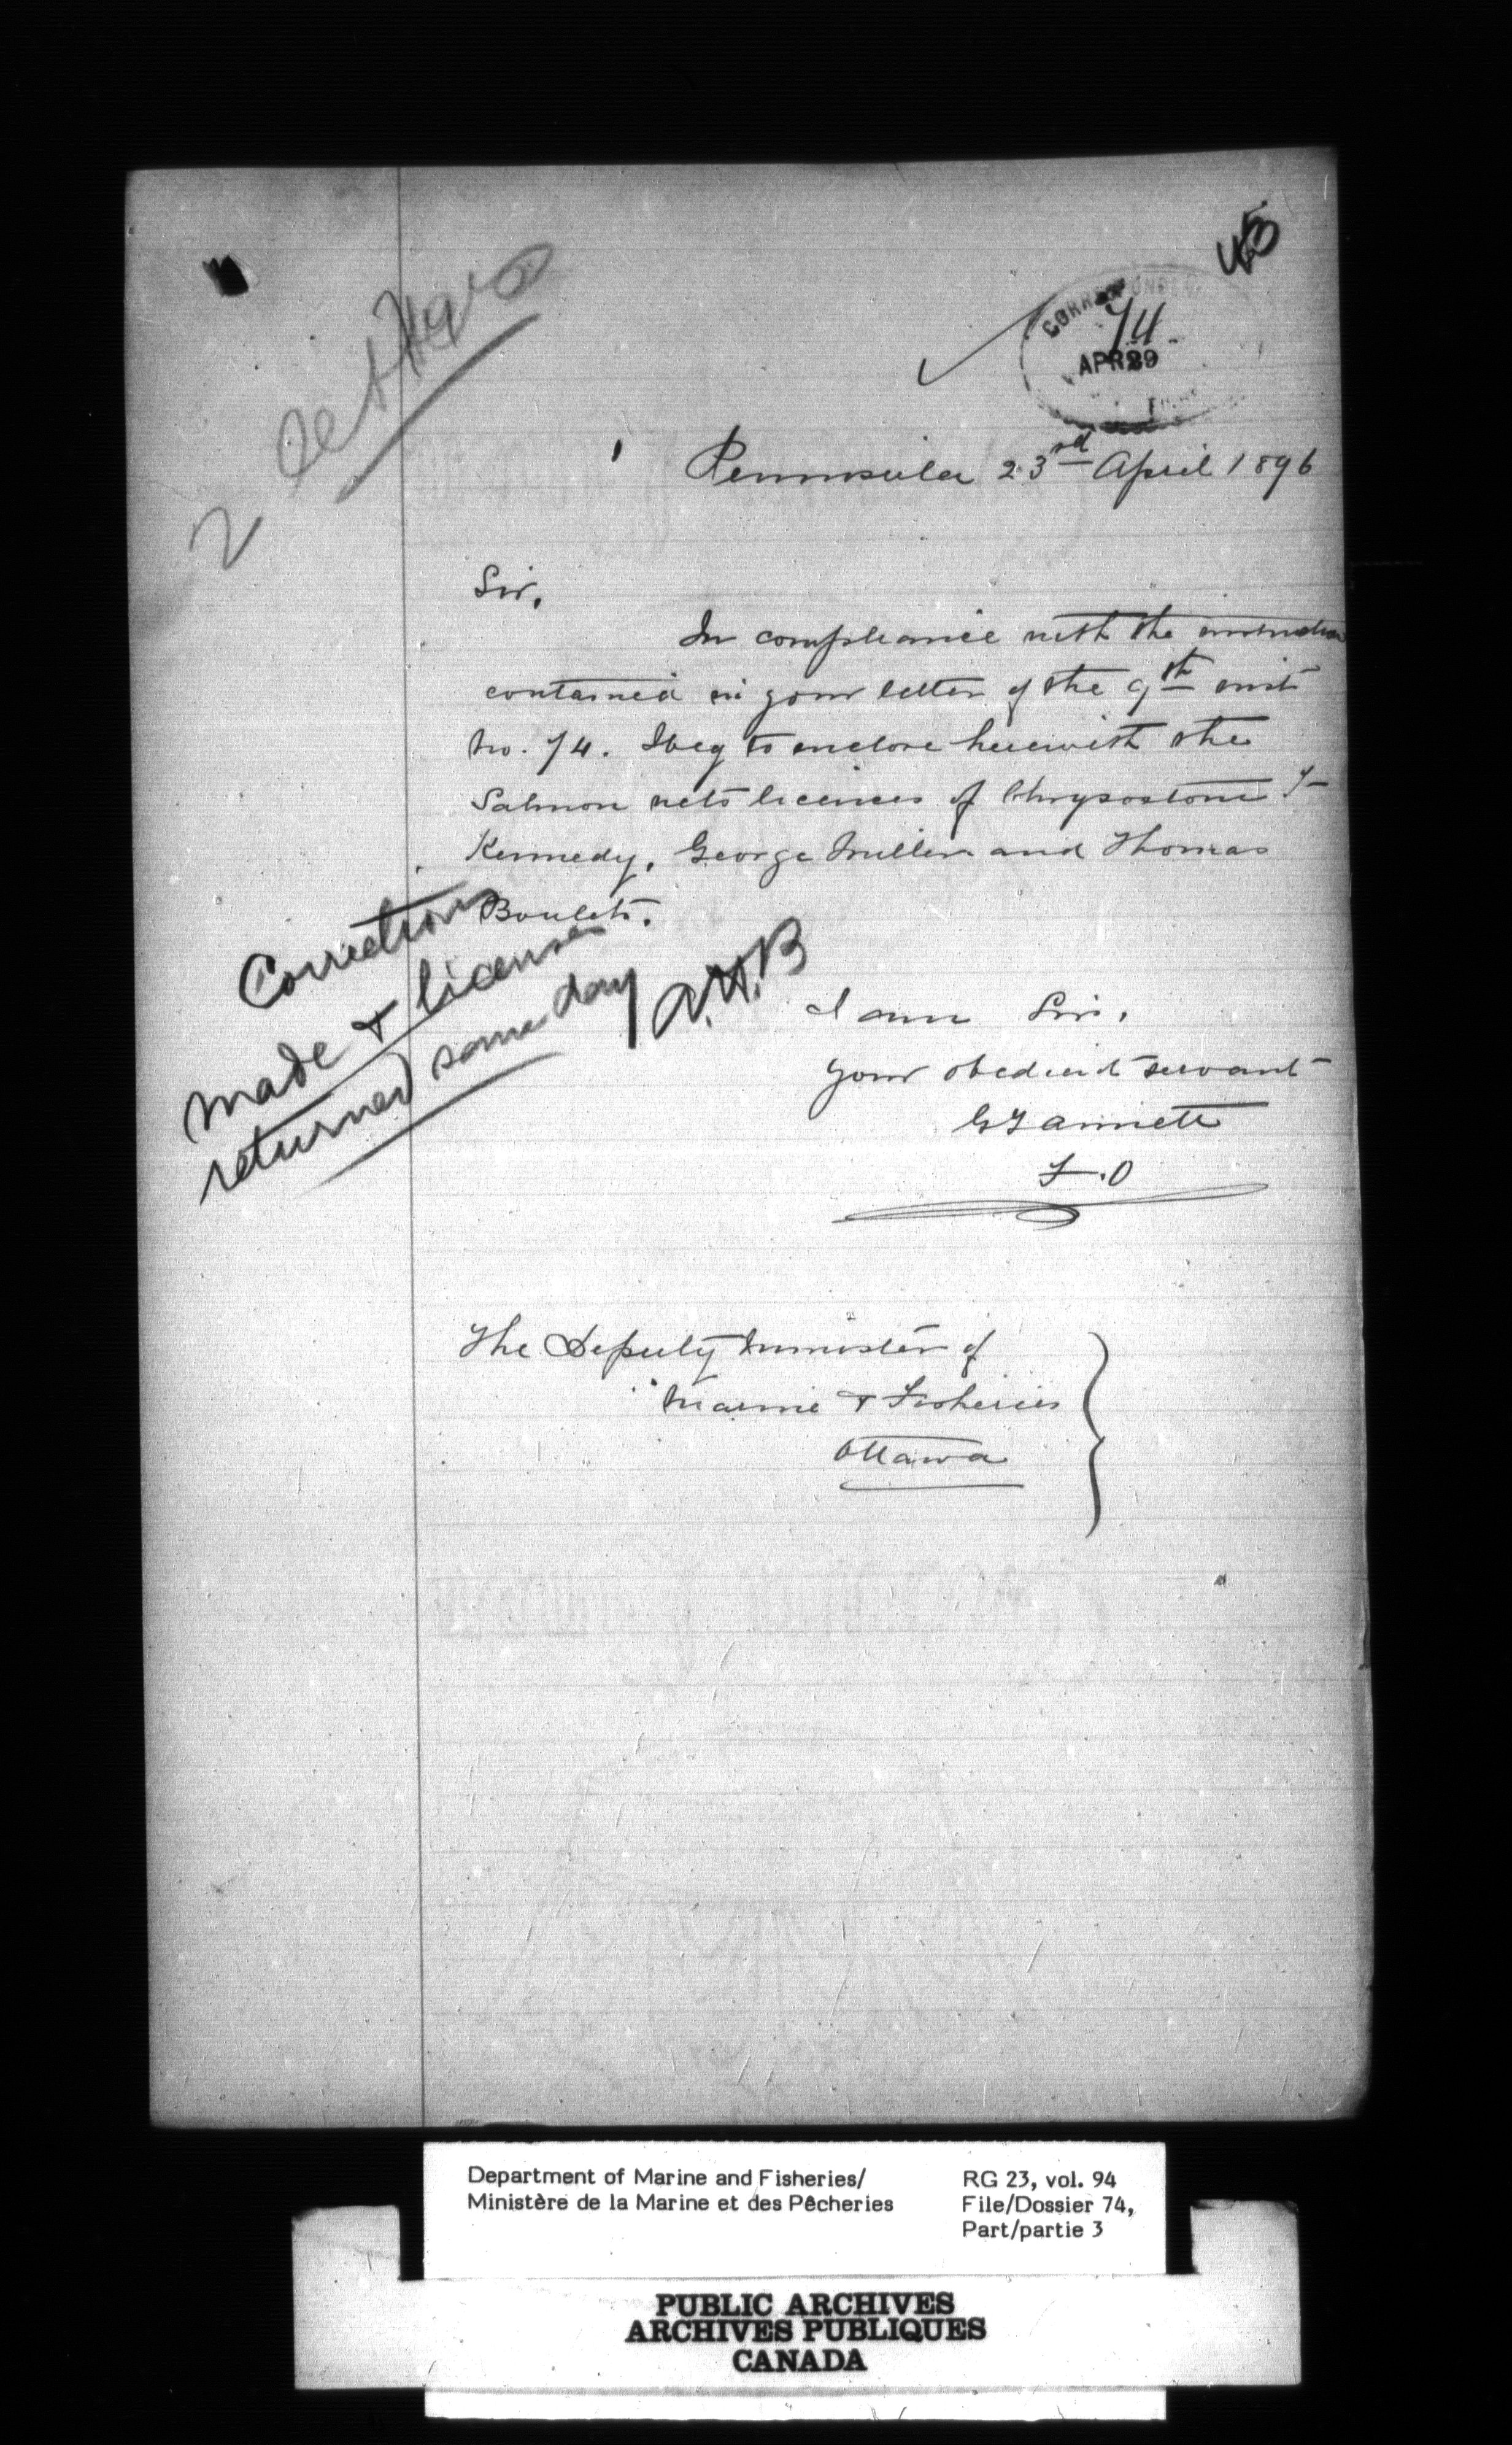 CORRESPONDEN
74
APR 29
Peninsula 23rd April 1896
Sir,
In compliance with the
contained in your letter of the 9th inst
No. 74. I beg to enclose herewith the
Salmon nets licences of Chrysostome
Kennedy, George Miller and Thomas
Boulet.
Correction
made & licenses
returned same day
I am Sir,
your obedient servant
F.O
The Deputy Minister of
Marine & Fisheries
Ottawa
Department of Marine and Fisheries/
Ministère de la Marine et des Pêcheries
RG 23, vol. 94
File/Dossier 74,
Part/partie 3
PUBLIC ARCHIVES
ARCHIVES PUBLIQUES
CANADA